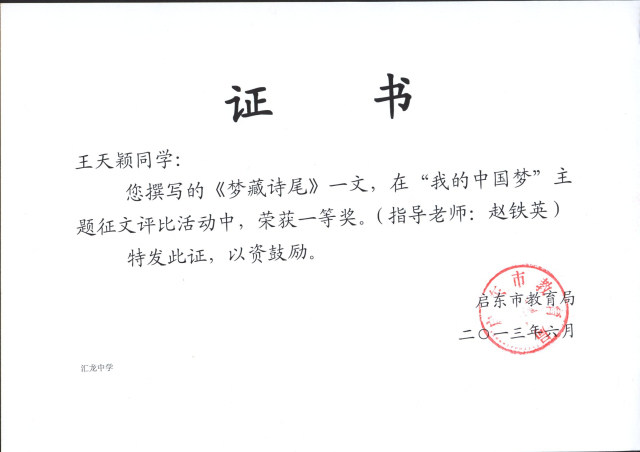 证 书
王天颖同学：
您撰写的《梦藏诗尾》一文，在“我的中国梦”主
题征文评比活动中，荣获一等奖。（指导老师：赵铁英）
特发此证，以资鼓励。
启东市教育局
二〇一三年六月
启东市教育局
汇龙中学